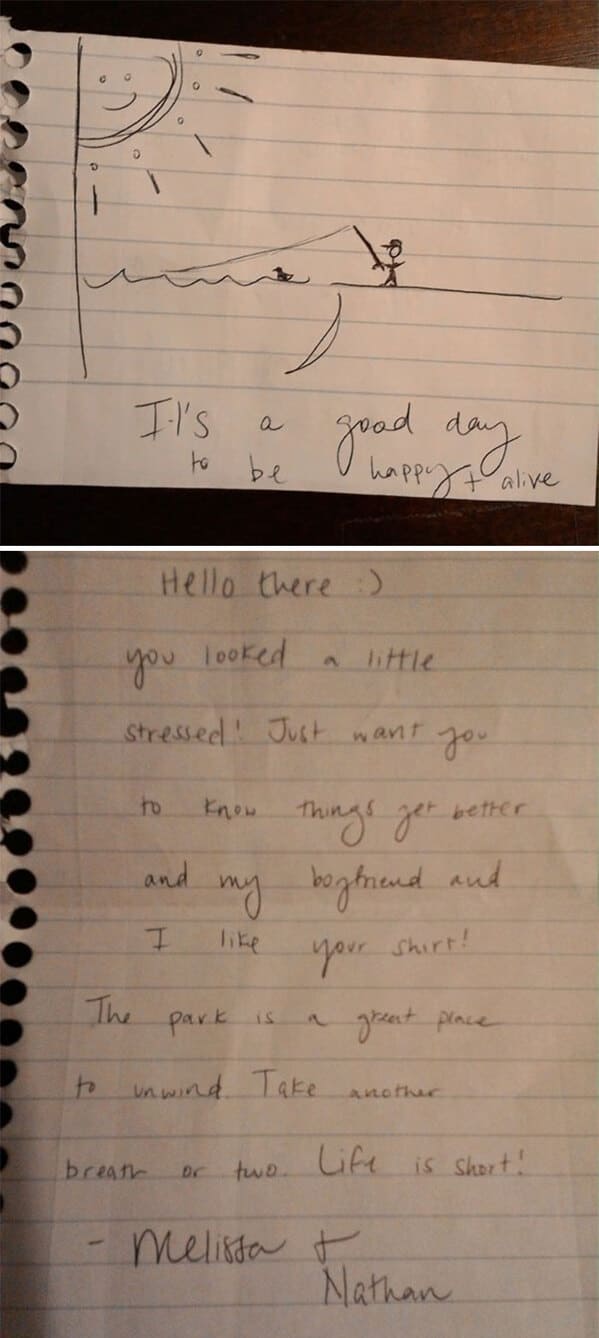 It's a good day
to be happy + alive
Hello there :)
you looked a little
stressed! Just want you
to know things get better
and my boyfriend and
I like your shirt!
The park is a great place
to unwind. Take another
breath or two. Life is short!
- Melissa +
Nathan